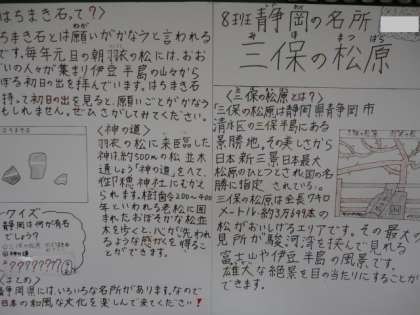 8班 静岡の名所
み ほ まつ ばら
三保の松原
〈三保の松原とは?〉
三保の松原は静岡県静岡市
清水区の三保半島にある
景勝地。その美しさから
日本新三景日本最大
松原のひとつとされ国の名
勝に指定 されている。
三保の松原は全長7キロ
メートル・約3万699本の
松がおいしげるエリアです。その最大の
見所が駿河湾を挟んで見れる
富士山や伊豆半島の風景です。
雄大な絶景を目の当たりにすることが
できます。
はちまき石,って?〉
ちまき石とは願いがかなうと言われる
です。毎年元旦の朝羽衣の松には、おお
いの人々が集まり伊豆半島の山々から
ぼる初日の出を拝んでいます。はちまき石
持って初日の出を見ると、願いごとがかなう
もしれません。ぜひさがしてみてください。
〈神の道〉
羽衣の松に来臨した
神は約500mの松並木
道しょう「神の道」をへて、
御穂神社にむかえ
られます。樹齢200~400
年といわれる老松に囲
まれたおごそかな松並
木を歩くと、心が洗われ
るような感かくを得るこ
とができます。
クイズ
静岡は何が有名
でしょう
〈まとめ〉
静岡県には、いろいろな名所があります。なので
日本の和風な文化を楽しんで来てください!